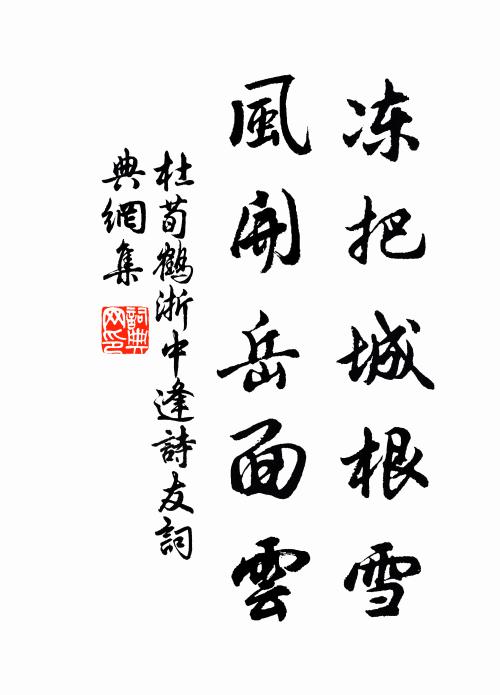 冻把城根雪
風開岳面雲
杜荀鶴浙中逢詩友詞
典網集
詞典网印